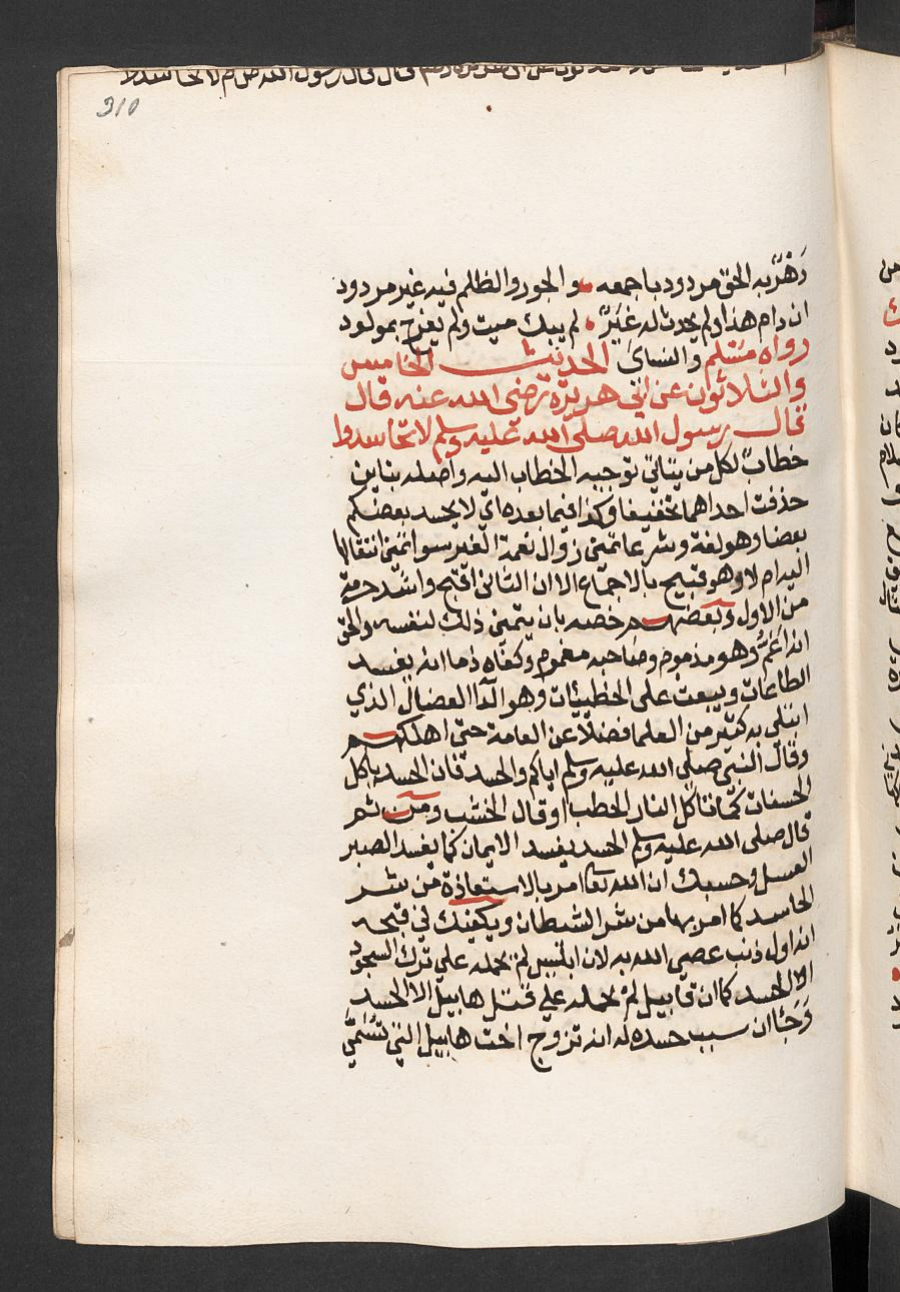 310
دَهْرٌ به الحق مردود باجمعه والجور والظلم فيه غير مردود
ان دام هذا ولم يحدث له غِيَرٌ لم يبك ميت ولم يفرح بمولود
رواه مسلم والنساى الحديث الخامس
والثلاثون عن ابى هريرة رضى الله عنه قال
قال رسول الله صلى الله عليه وسلم لا تحاسدوا
خطابٌ لكل من يتاتى توجيه الخطاب اليه واصله بتاين
حذفت احداهما تخفيفا وكذا فيما بعده اي لا يحسد بعضكم
بعضا وهو لغة وشرعا تمنى زوال نعمة الغير سوا تمنى انتقالها
اليه ام لا وهو قبيح بالاجماع الا ان الثانى اقبح واشد حرمة
من الاول وبعضهم خصه بان يتمنى ذلك لنفسه والحق
انه اعَمُّ وهو مذموم وصاحبه مغموم وكفاه ذما انه يفسد
الطاعات ويبعث على الخطيئات وهو الدآ العضال الذي
ابتلى به كثير من العلما فضلا عن العامة حتى اهلكهم
وقال النبى صلى الله عليه وسلم اياكم والحسد فان الحسد ياكل
الحسنات كما تاكل النار الحطب او قال الخشب ومن ثم
قال صلى الله عليه وسلم الحسد يفسد الايمان كما يفسد الصبر
العسل وحسبك ان الله تعا امر بالاستعاذة من شر
الحاسد كما امر بها من شر الشيطان ويكفيك في قبحه
انه اول ذنب عصى الله به لان ابليس لم يحمله علي ترك السجود
الا الحسد كما ان قابيل لم يحمله علي قتل هابيل الا الحسد
وَجَآ ان سبب حسده له انه تزوج اخت هابيل التي تُسَمَّى